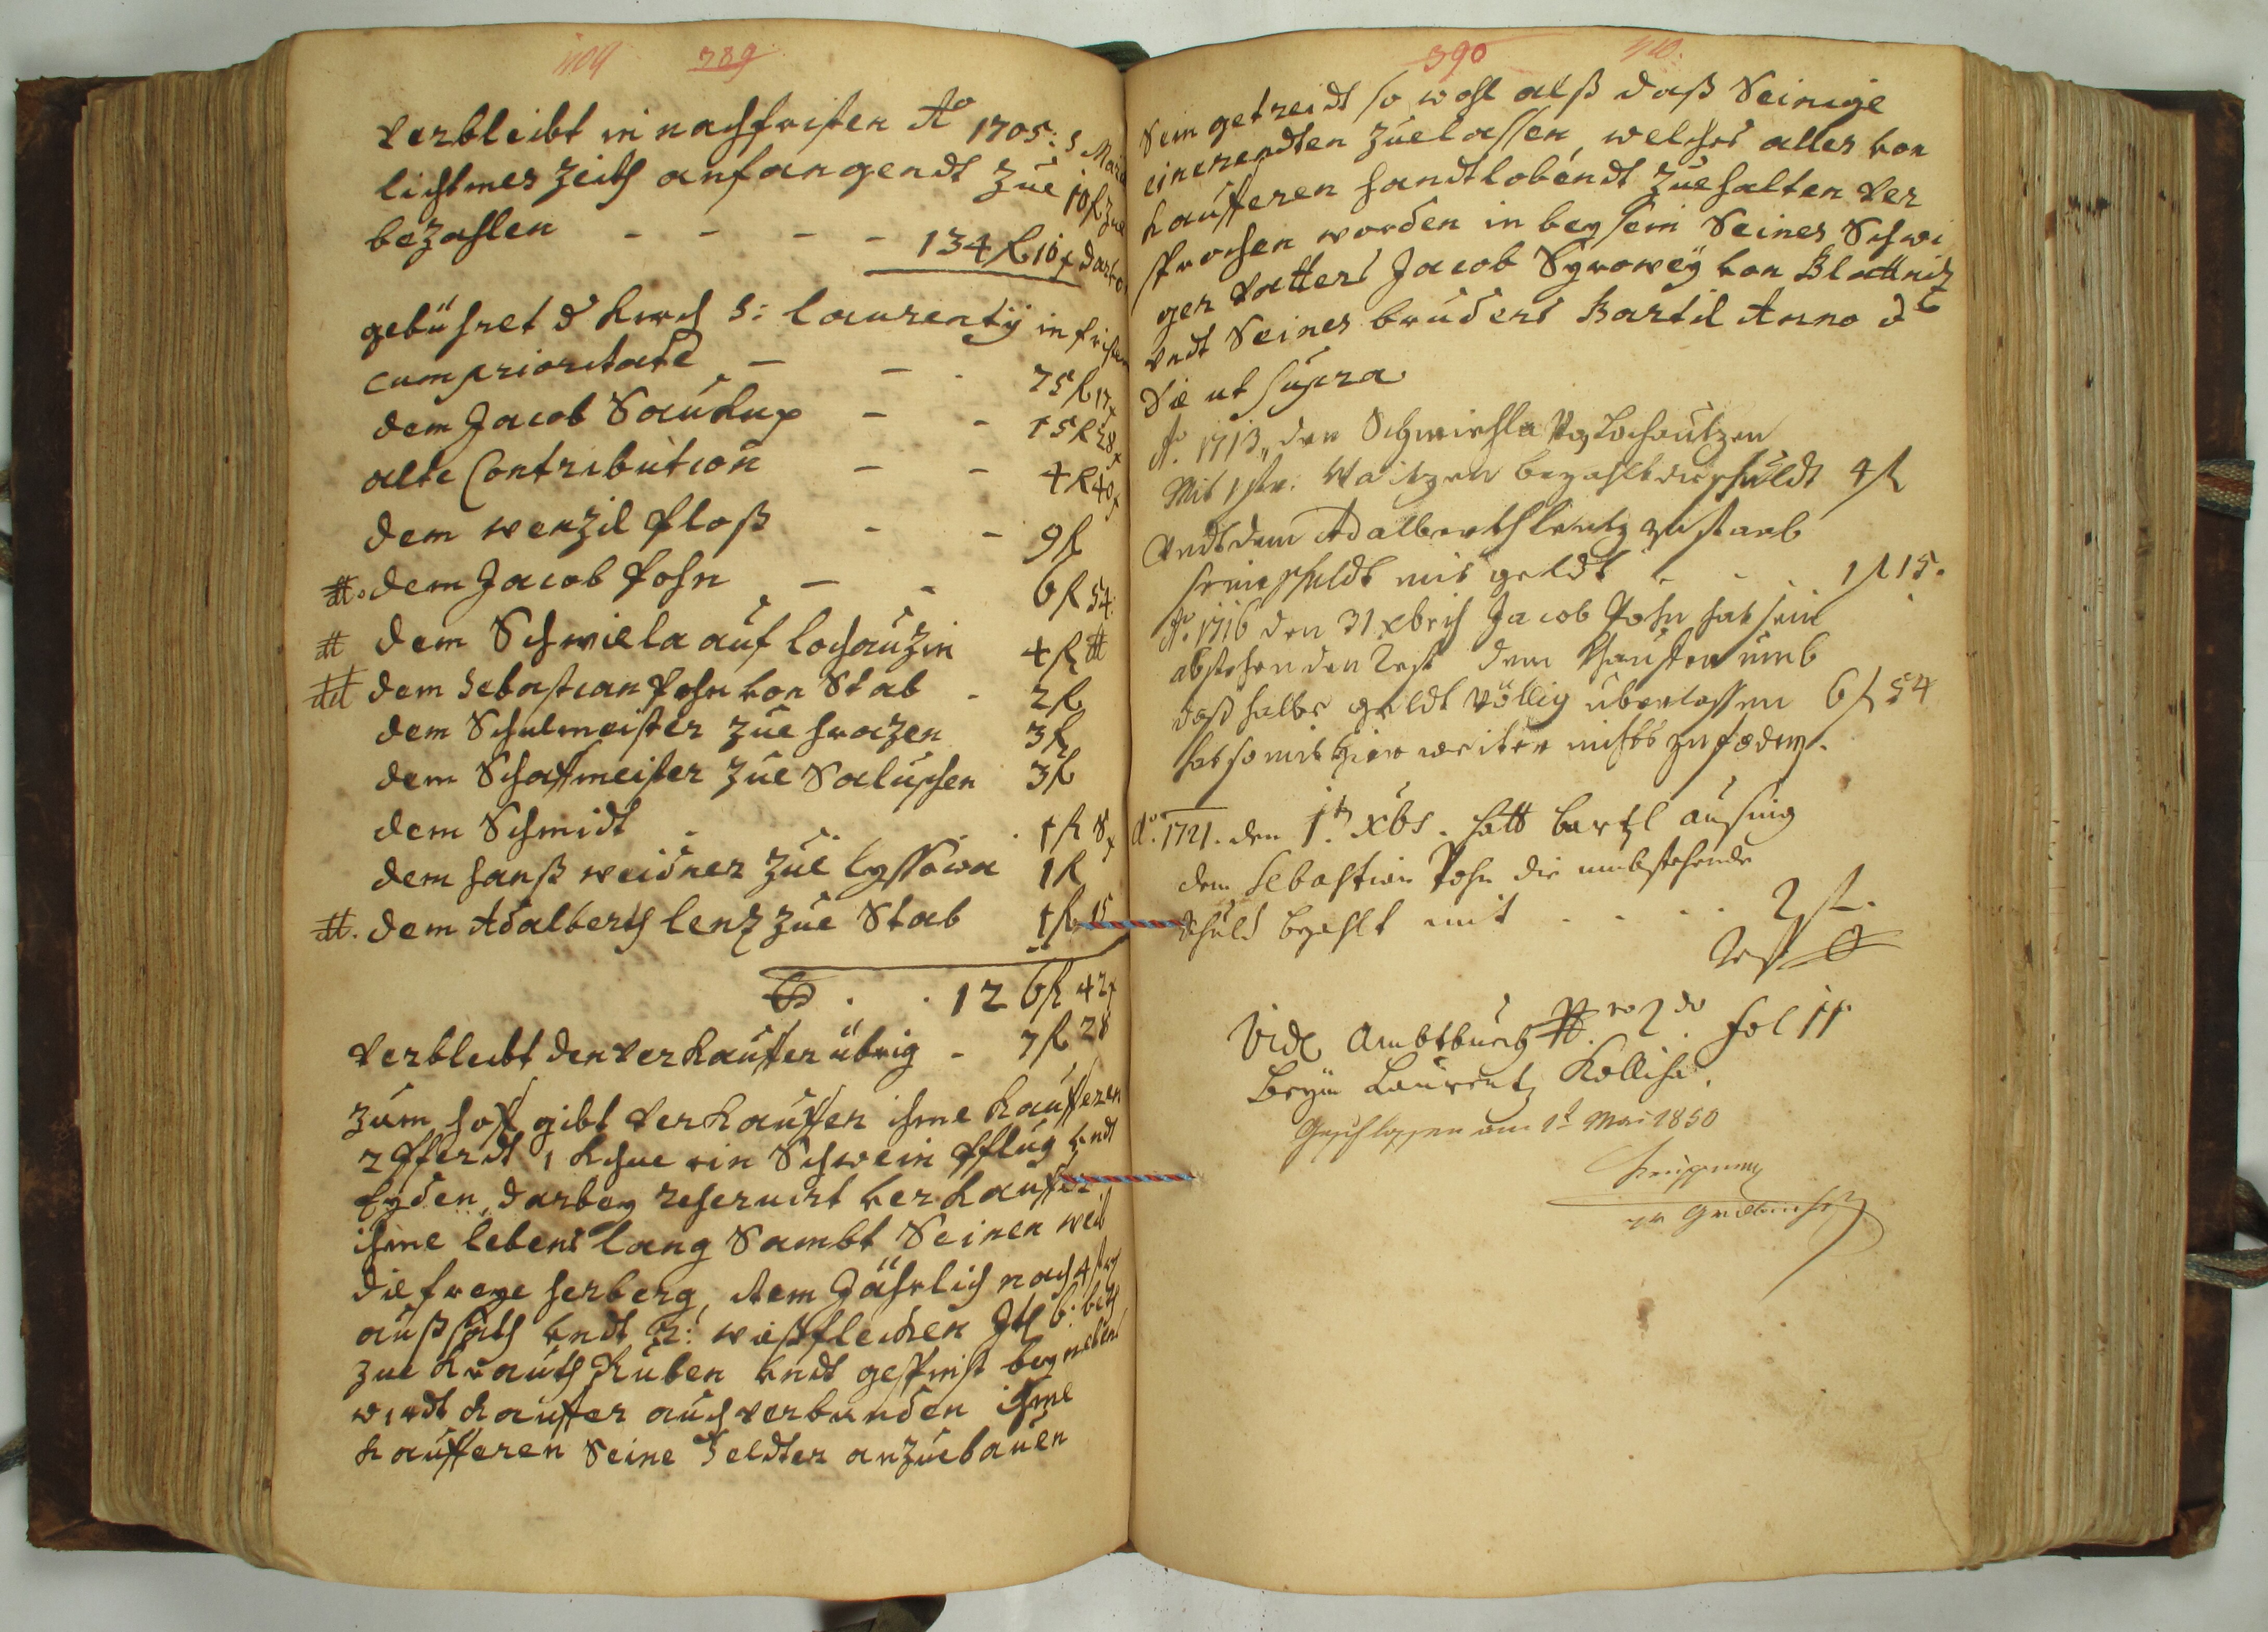 409 389
verbleibt in nachfristen Ao 1705: S Maria
lichtmes Zeith anfangendt zue 10 fl zue
bezahlen - - - - 134 fl 10 x darvo
gebühret d Kirch S: Laurentij in fristen
cum prioritate - - 75 fl 17 x
dem Jacob Saukup - - 15 fl 28 x
alte Contribution - - 4 fl 40 x
dem wenzil floß - - 9 fl
dem Jacob Pohn - - 6 fl 54
dem Schwiela auf lochauzin 4 fl
dem Sebastian Pohn von Stab - 2 fl
dem Schulmeister zue hrazen 3 fl
dem Schaffmeister zue Saluschen 3 fl
dem Schmidt . . . 1 fl 8 x
dem hanß weidner zue lyssowa 1 fl
dem Adalberth lenz zue Stab 1 fl 15
. . 126 fl 42 x
verbleibt den verkauffer übrig - 7 fl 28
zum hoff gibt verkauffer ihme kaufferen
2 Pferdt 1 Khue ein Schwein Pflug vndt
Eyden, darbey reseruirt verkauffer
ihme lebens lang Sambt Seinen weib
die freye herberg, item Jährlich nach 4 str
außsath vndt 2: wießflecken Itl 6: beth
zue Krauth Ruben vndt gespinst beynebens
wirdt kauffer auch verbunden ihme
kaufferen Seine Feldter anzuebauen
390 410
Sein getreidt so wohl alß daß Seinige
einerendten zuelassen, welches alles von
kaufferen handtlobendt zuehalten ver
sprochen worden in beysein Seines Schwi
ger Vatters Jacob Syrowey von Blattnitz
vndt Seines bruders Bartil Anno d
Die ut supra
Ao. 1713 den Schwiehla Lochoutzen
Mit 1 str. Waitzen bezahlt die schuldt 4 fl
Vndt dem Adalberth lentz zu staab
seine schuldt mit geldt - - 1 fl 15.
Ao. 1716 den 31 xbris Jacob Pohn hat sein
abstehenden Rest dem Kauffer umb
daß halbe geldt völlig überlassen 6 fl 54
hat somit hier weiter nichts zu fodern.
Ao. 1721. den 1t xbs. hatt bartl
dem Sebastian Pohn die umbstehende
schuld bezahlt mit . . . . 2 fl.
Rest
Vide Ambtbuch 2do fol 11
Beym Laurentz
Geschlossen am 1t Mai 1850